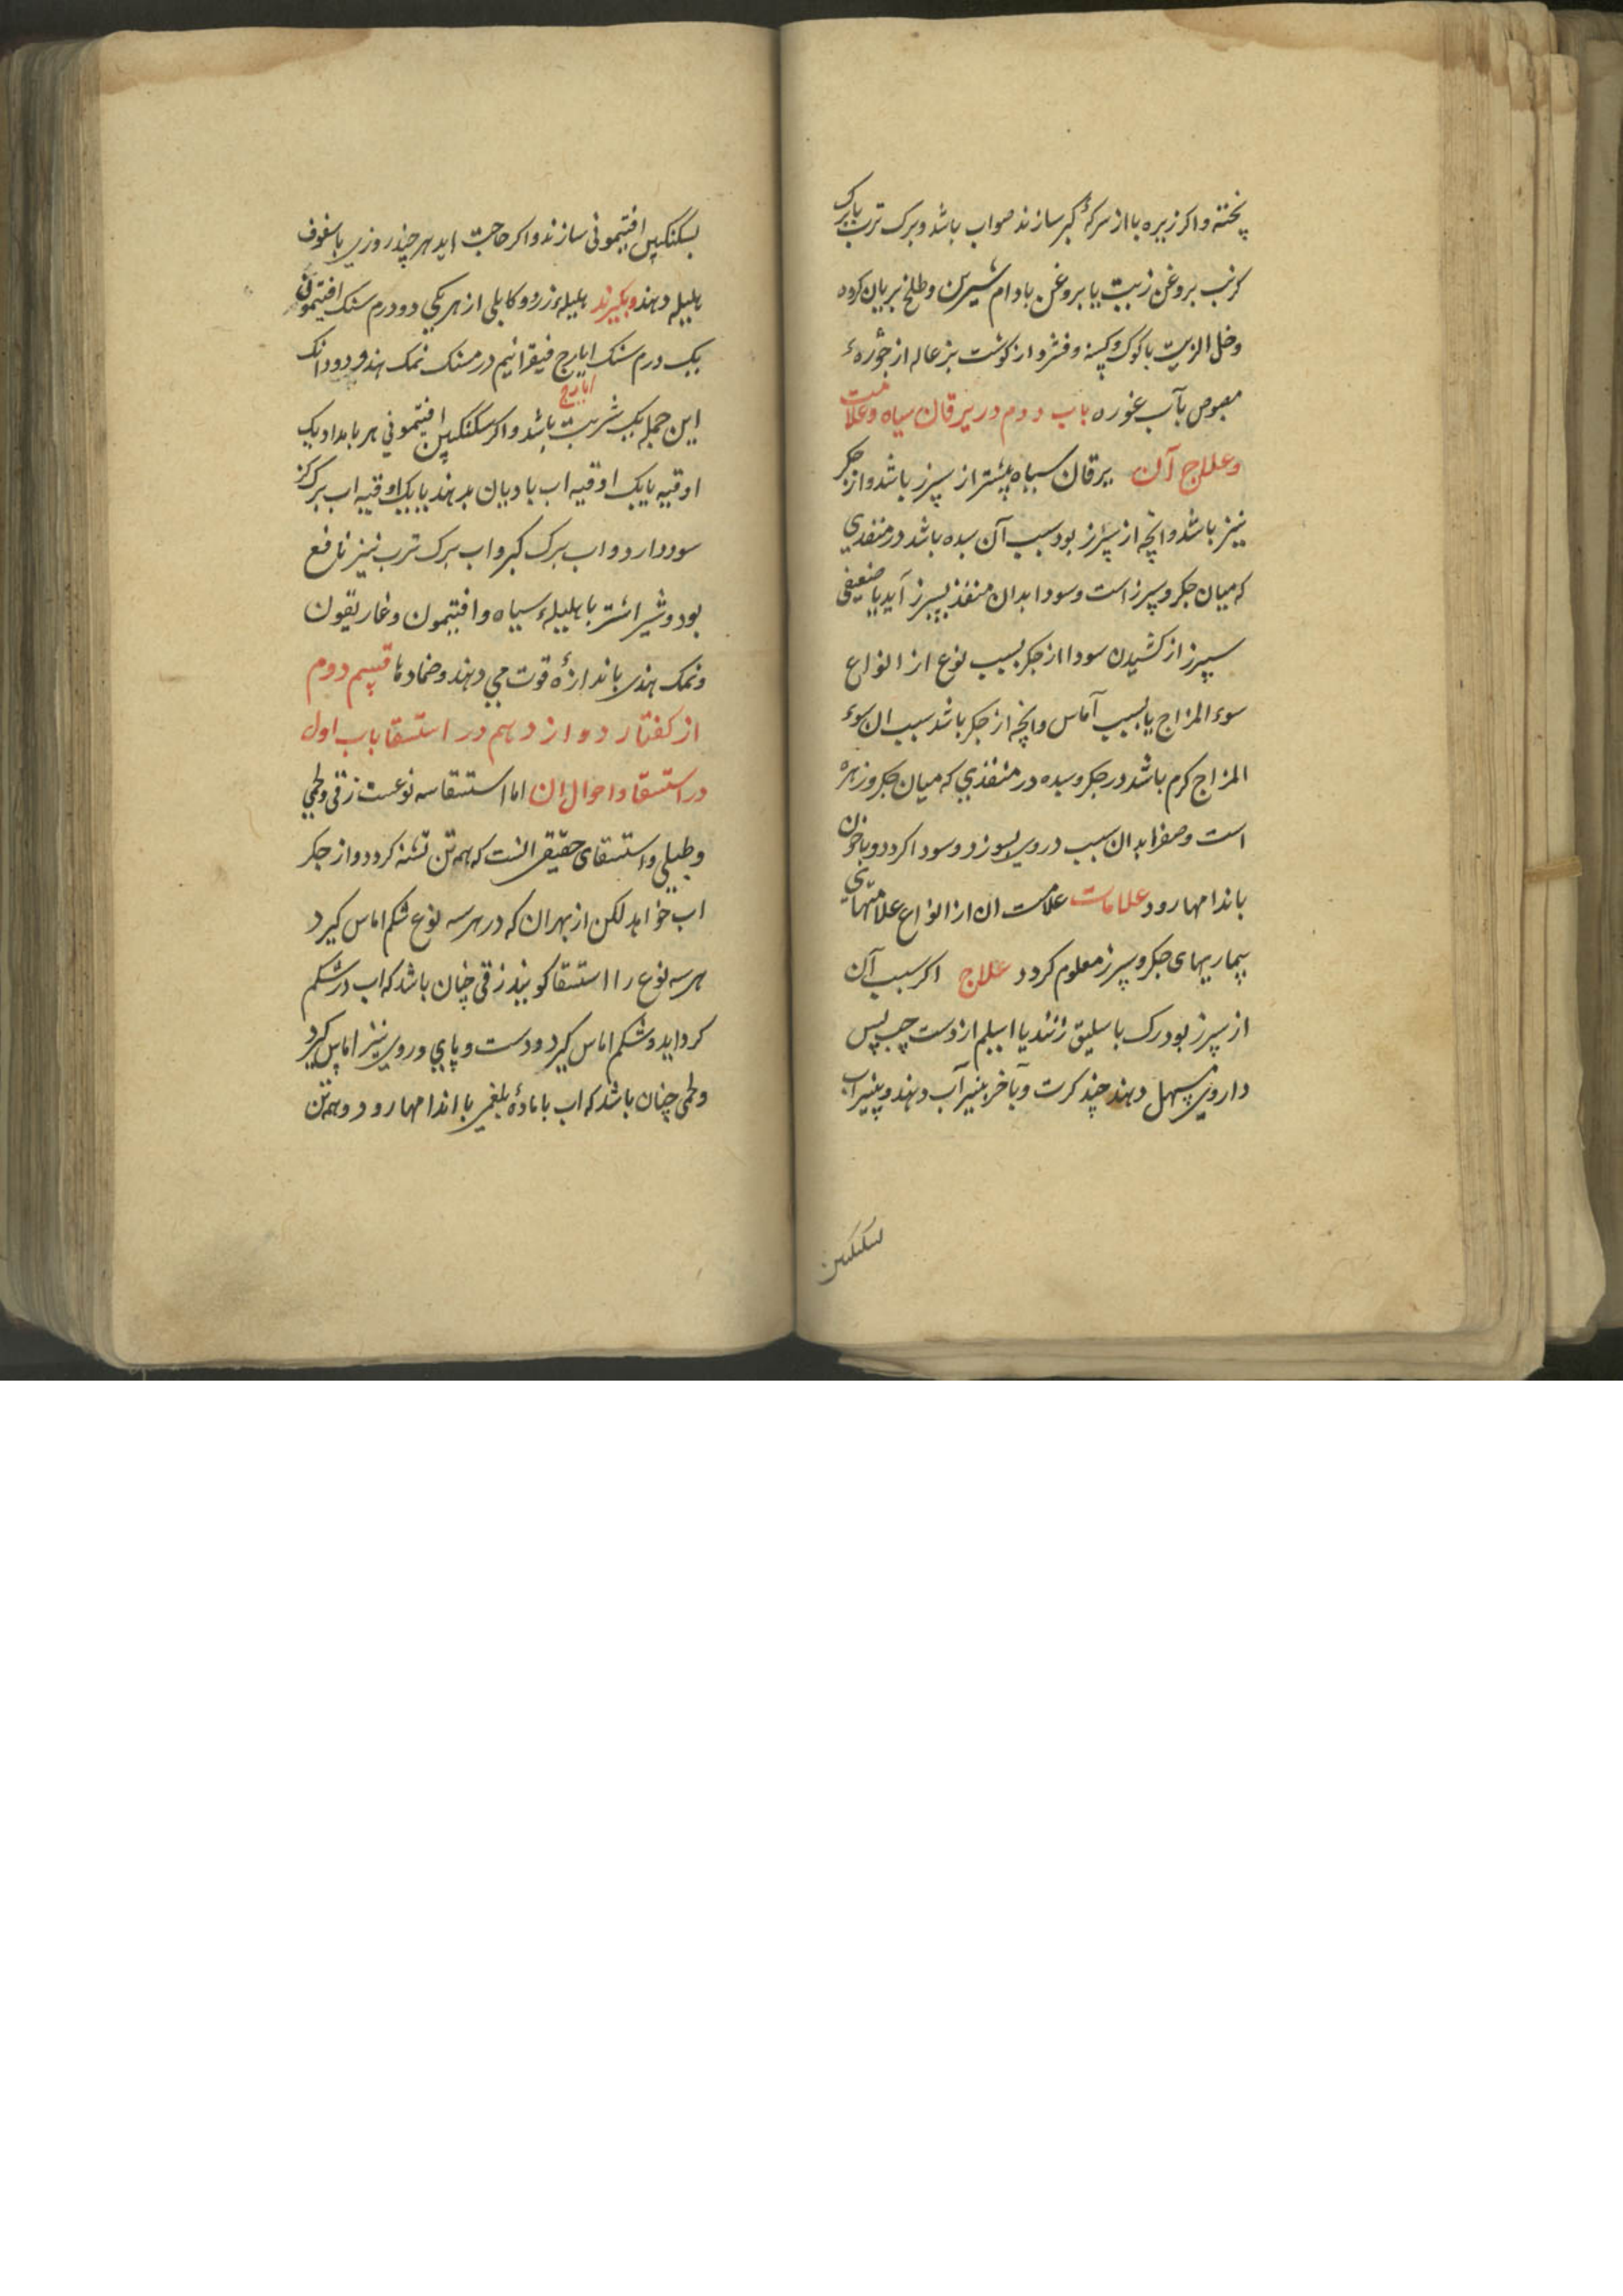 پخته واکر زیره با از سرکهٔ کبر سازند صواب باشد وبرک ترب یا برک
کرنب بروغن زیت یا بروغن بادام شیرین وطلخ بریان کرده
وخل الزیت با کوک وکسنه وفشرد از کوشت بزعاله از خوره
مصوص بآب غوره باب دوم در یرقان سیاه وعلامت
وعلاج آن یرقان سیاه بیشتر از سپرز باشد واز جکر
نیز باشد وانچه از سپرز بود سبب آن سده باشد در منفذی
که میان جکر وسپرز است وسودا بدان منفذ بسپرز آید یا ضعیفی
سپرز از کشیدن سودا از جکر بسبب نوع از انواع
سوء المزاج یا بسبب آماس وانچه از جکر باشد سبب ان سوء
المزاج کرم باشد در جکر وسده در منفذی که میان جکر وزهره
است وصفرا بدان سبب در وی بسوزد وسودا کردد وبا خون
باندامها رود علامات علامت ان از انواع علامتهای
بیماریهای جکر وسپرز معلوم کردد علاج اکر سبب آن
از سپرز بود رک باسلیق زنند یا اسیلم از دست چپ پس
داروی مسهل دهند چند کرت وبآخر پنیر آب دهند وپنیر آب
بسکنکبین
بسکنکبین افتیمونی سازند واکر حاجت اید هر چند روزی با سفوف
هلیله دهند وبکیرند هلیلهٔ زرد وکابلی از هر یکی دو درم سنک افتیمون
یک درم سنک ایارج فیقرا نیم درم سنک نمک هندی دو دانک
ایارج
این جمله یک شربت باشد واکر سکنکبین افتیمونی هر بامداد یک
اوقیه با یک اوقیه اب بادیان بدهند یا یک اوقیه اب برک کز
سود دارد واب برک کبر واب برک ترب نیز نافع
بود وشیر اشتر با هلیلهٔ سیاه وافتیمون وغاریقون
ونمک هندی باندازهٔ قوت می دهند وضمادها قسم دوم
از کفتار دوازدهم در استسقا باب اول
در استسقا واحوال ان اما استسقا سه نوعست زقی ولحمی
وطبلی واستسقای حقیقی انست که همه تن تشنه کردد واز جکر
اب خواهد لکن از بهر ان که در هر سه نوع شکم اماس کیرد
هر سه نوع را استسقا کویند زقی چنان باشد که اب در شکم
کرد اید وشکم اماس کیرد ودست وپای وروی نیز اماس کیرد
ولحمی چنان باشد که اب با مادهٔ بلغمی با اندامها رود وهمه تن